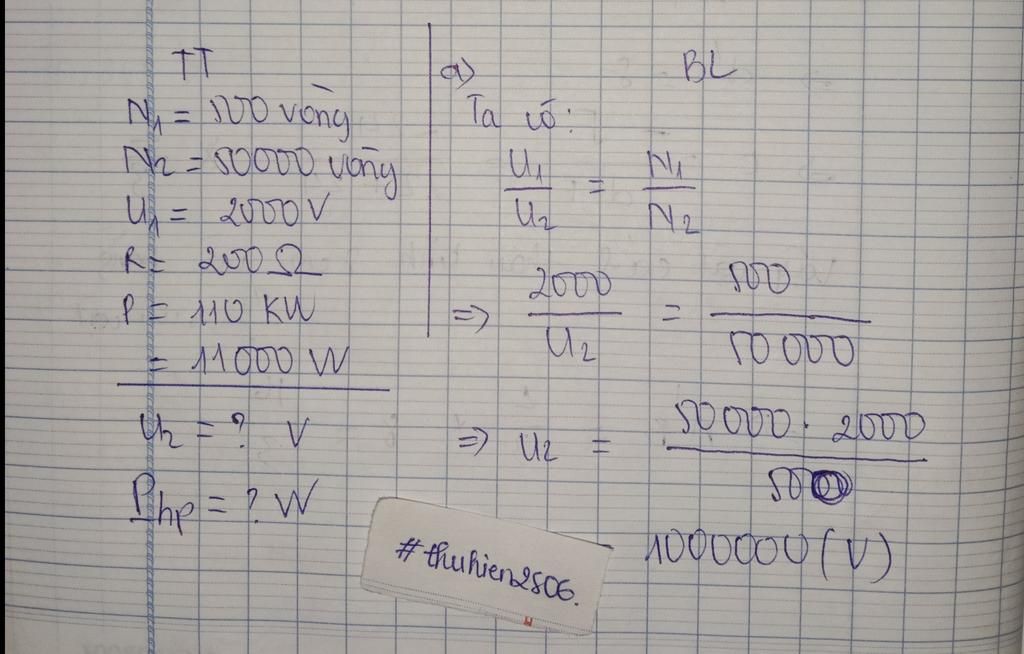 TT
N₁ = 500 vòng
N₂ = 50000 vòng
U₁ = 2000 V
R = 200 Ω
P = 110 KW
= 11000 W
U₂ = ? V
P_hp = ? W
a) BL
Ta có:
U₁/U₂ = N₁/N₂
=> 2000/U₂ = 500/50000
=> U₂ = 50000 . 2000/500
1000000 (V)
#thuhien2806.